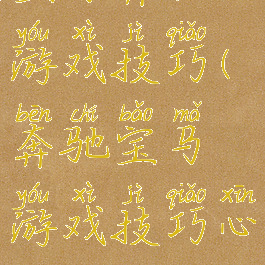 yóu xì jì qiǎo
游戏技巧(
bēn chí bǎo mǎ
奔驰宝马
yóu xì jì qiǎo xīn
游戏技巧心